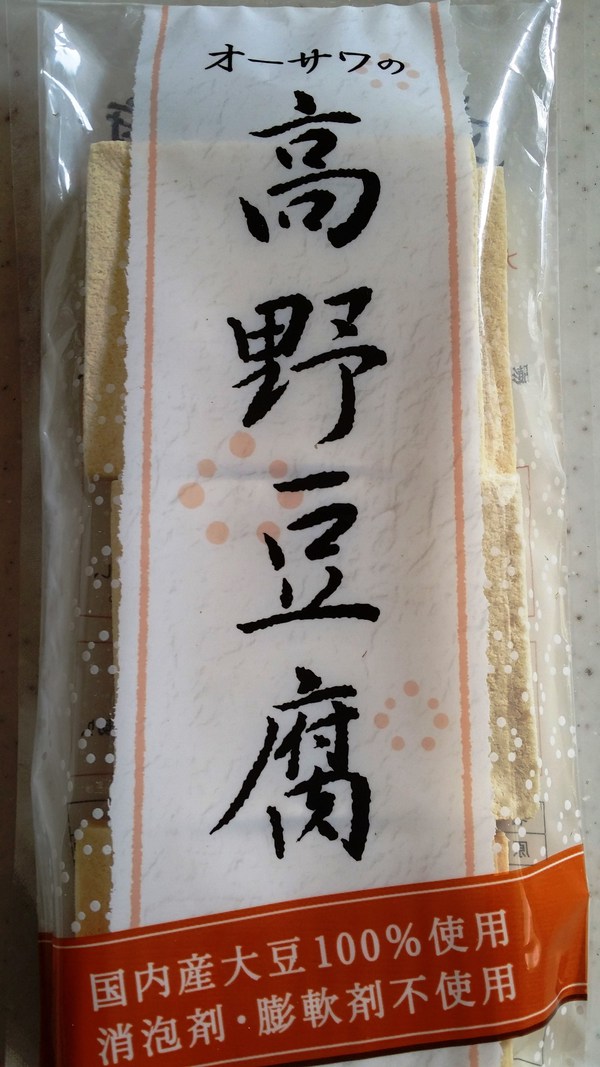 オーサワの
高野豆腐
国内産大豆100%使用
消泡剤・膨軟剤不使用